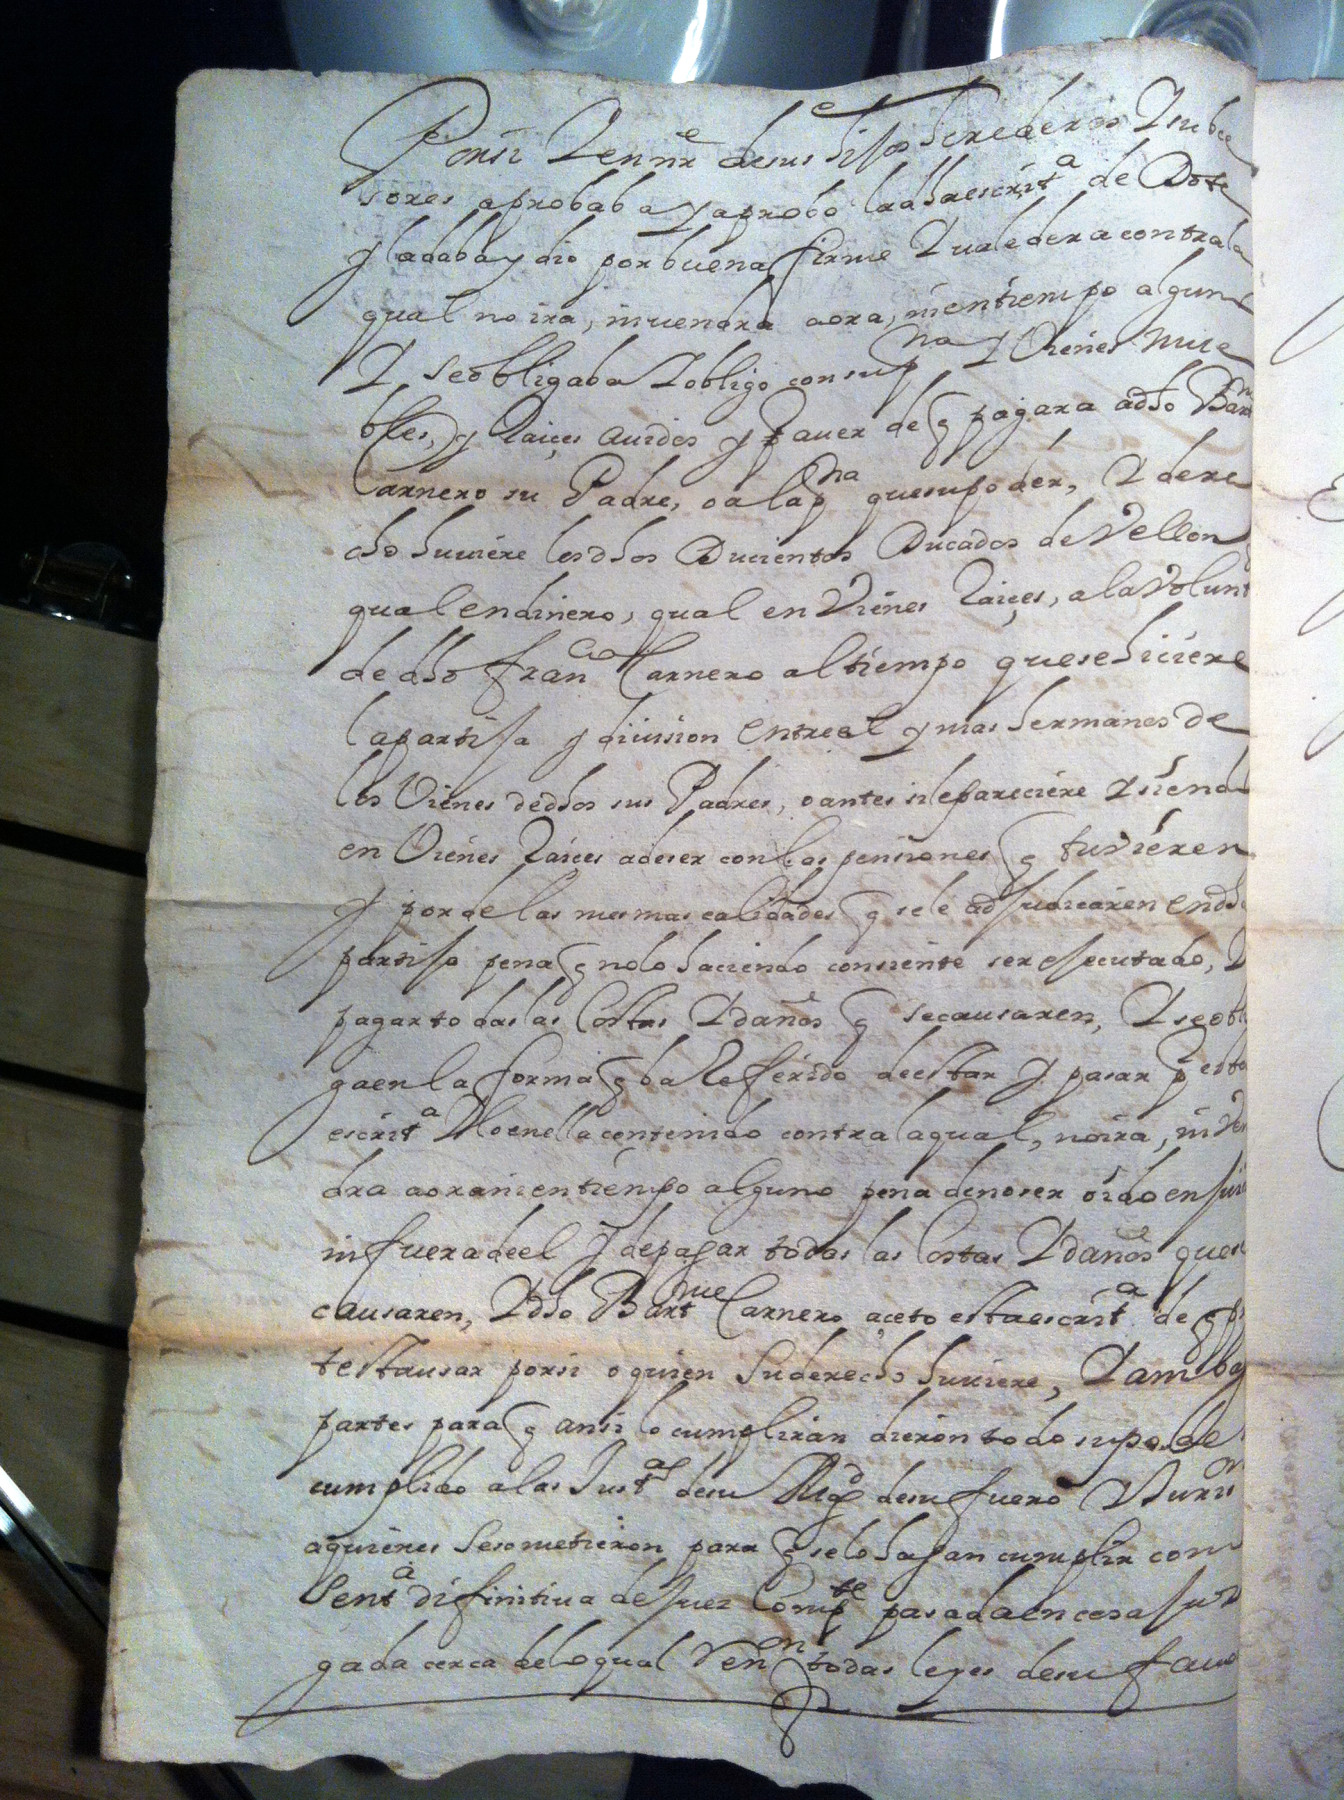 Por si Y en nre de sus hijos herederos Y sube
sores aprobaba y aprobo la dha escrit.a de Dote
y la daba y dio por buena firme Y valedera contra la
qual no ira, ni vendra aora, ni en tiempo alguno
Y se obligaba Y obligo con su p.na Y Vienes mue
bles, y Raiçes avidos y P aver de q pagara a dho Bar.me
Carnero su Padre, o a la p.na que su poder, Y dere
cho huviere los dhos Ducientos Ducados de Vellon
qual en dinero, qual en Vienes Raiçes, a la Volunt
de dho fran.co Carnero al tiempo que se hiciere
la partija y diuision entre el y mas hermanos de
los Vienes de dhos sus Padres, o antes si le pareciere Y siendo
en Vienes Raiçes a de ser con las pensiones q tuvieren
y por de las mesmas calidades q se le adjudicaren en dha
partija pena q no lo haciendo consiente ser ejecutado, Y
pagar todas las Costas Y daños q se causaren, Y se obli
ga en la forma q ba Referido de estar y pasar P esta
escrit.a Y lo en ella contenido contra la qual, no ira, ni Ven
dra aora ni en tiempo alguno pena de no ser oido en jui
ni fuera de el y de pagar todas las Costas Y daños que se
causaren, Y dho Bart.me Carnero açeto esta escrit.a de q pro
testa usar por si o quien su derecho huviere, Y ambas
partes para q ansi lo cumpliran dieron todo su poder
cumplido a las Just.as de su Mag.d de su fuero Y Juris.on
a quienes se sometieron para q se lo hagan cumplir como
Sent.a difinitiva de Juez Comp.te pasada en cosa juz
gada cerca de lo qual Ren.en todas leyes de su favor